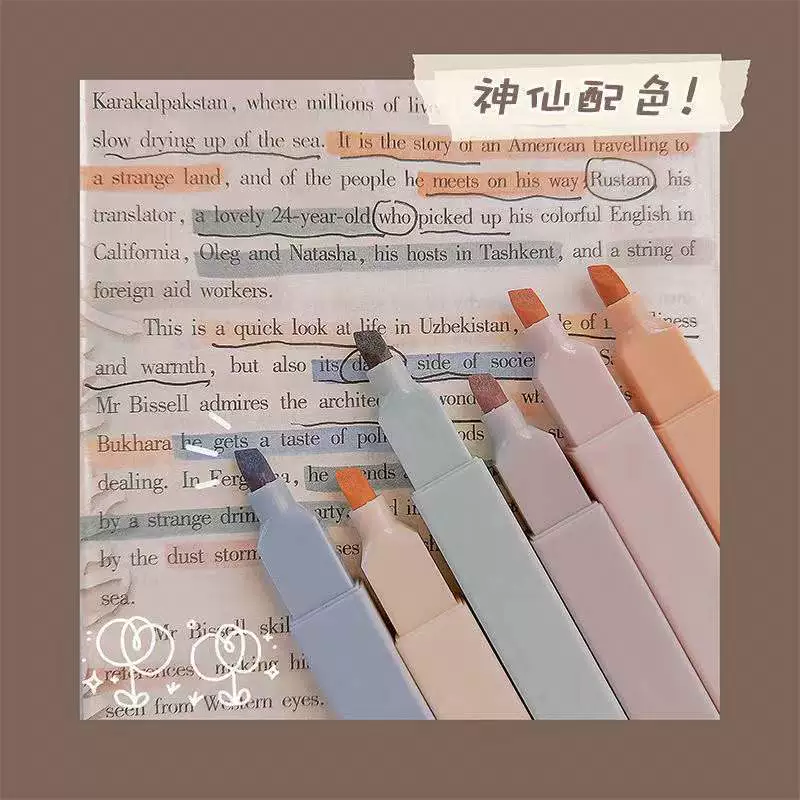 神仙配色!
Karakalpakstan, where millions of
slow drying up of the sea. It is the story of an American travelling to
a strange land, and of the people he meets on his way: Rustam, his
translator, a lovely 24-year-old who picked up his colorful English in
California, Oleg and Natasha, his hosts in Tashkent, and a string of
foreign aid workers.
This is a quick look at life in Uzbekistan,
and warmth, but also its side of
Mr Bissell admires the
Bukhara he gets a taste of
dealing. In he
by a strange
by the dust
sea.
Mr Bissell
references, making
seen from Western eyes.